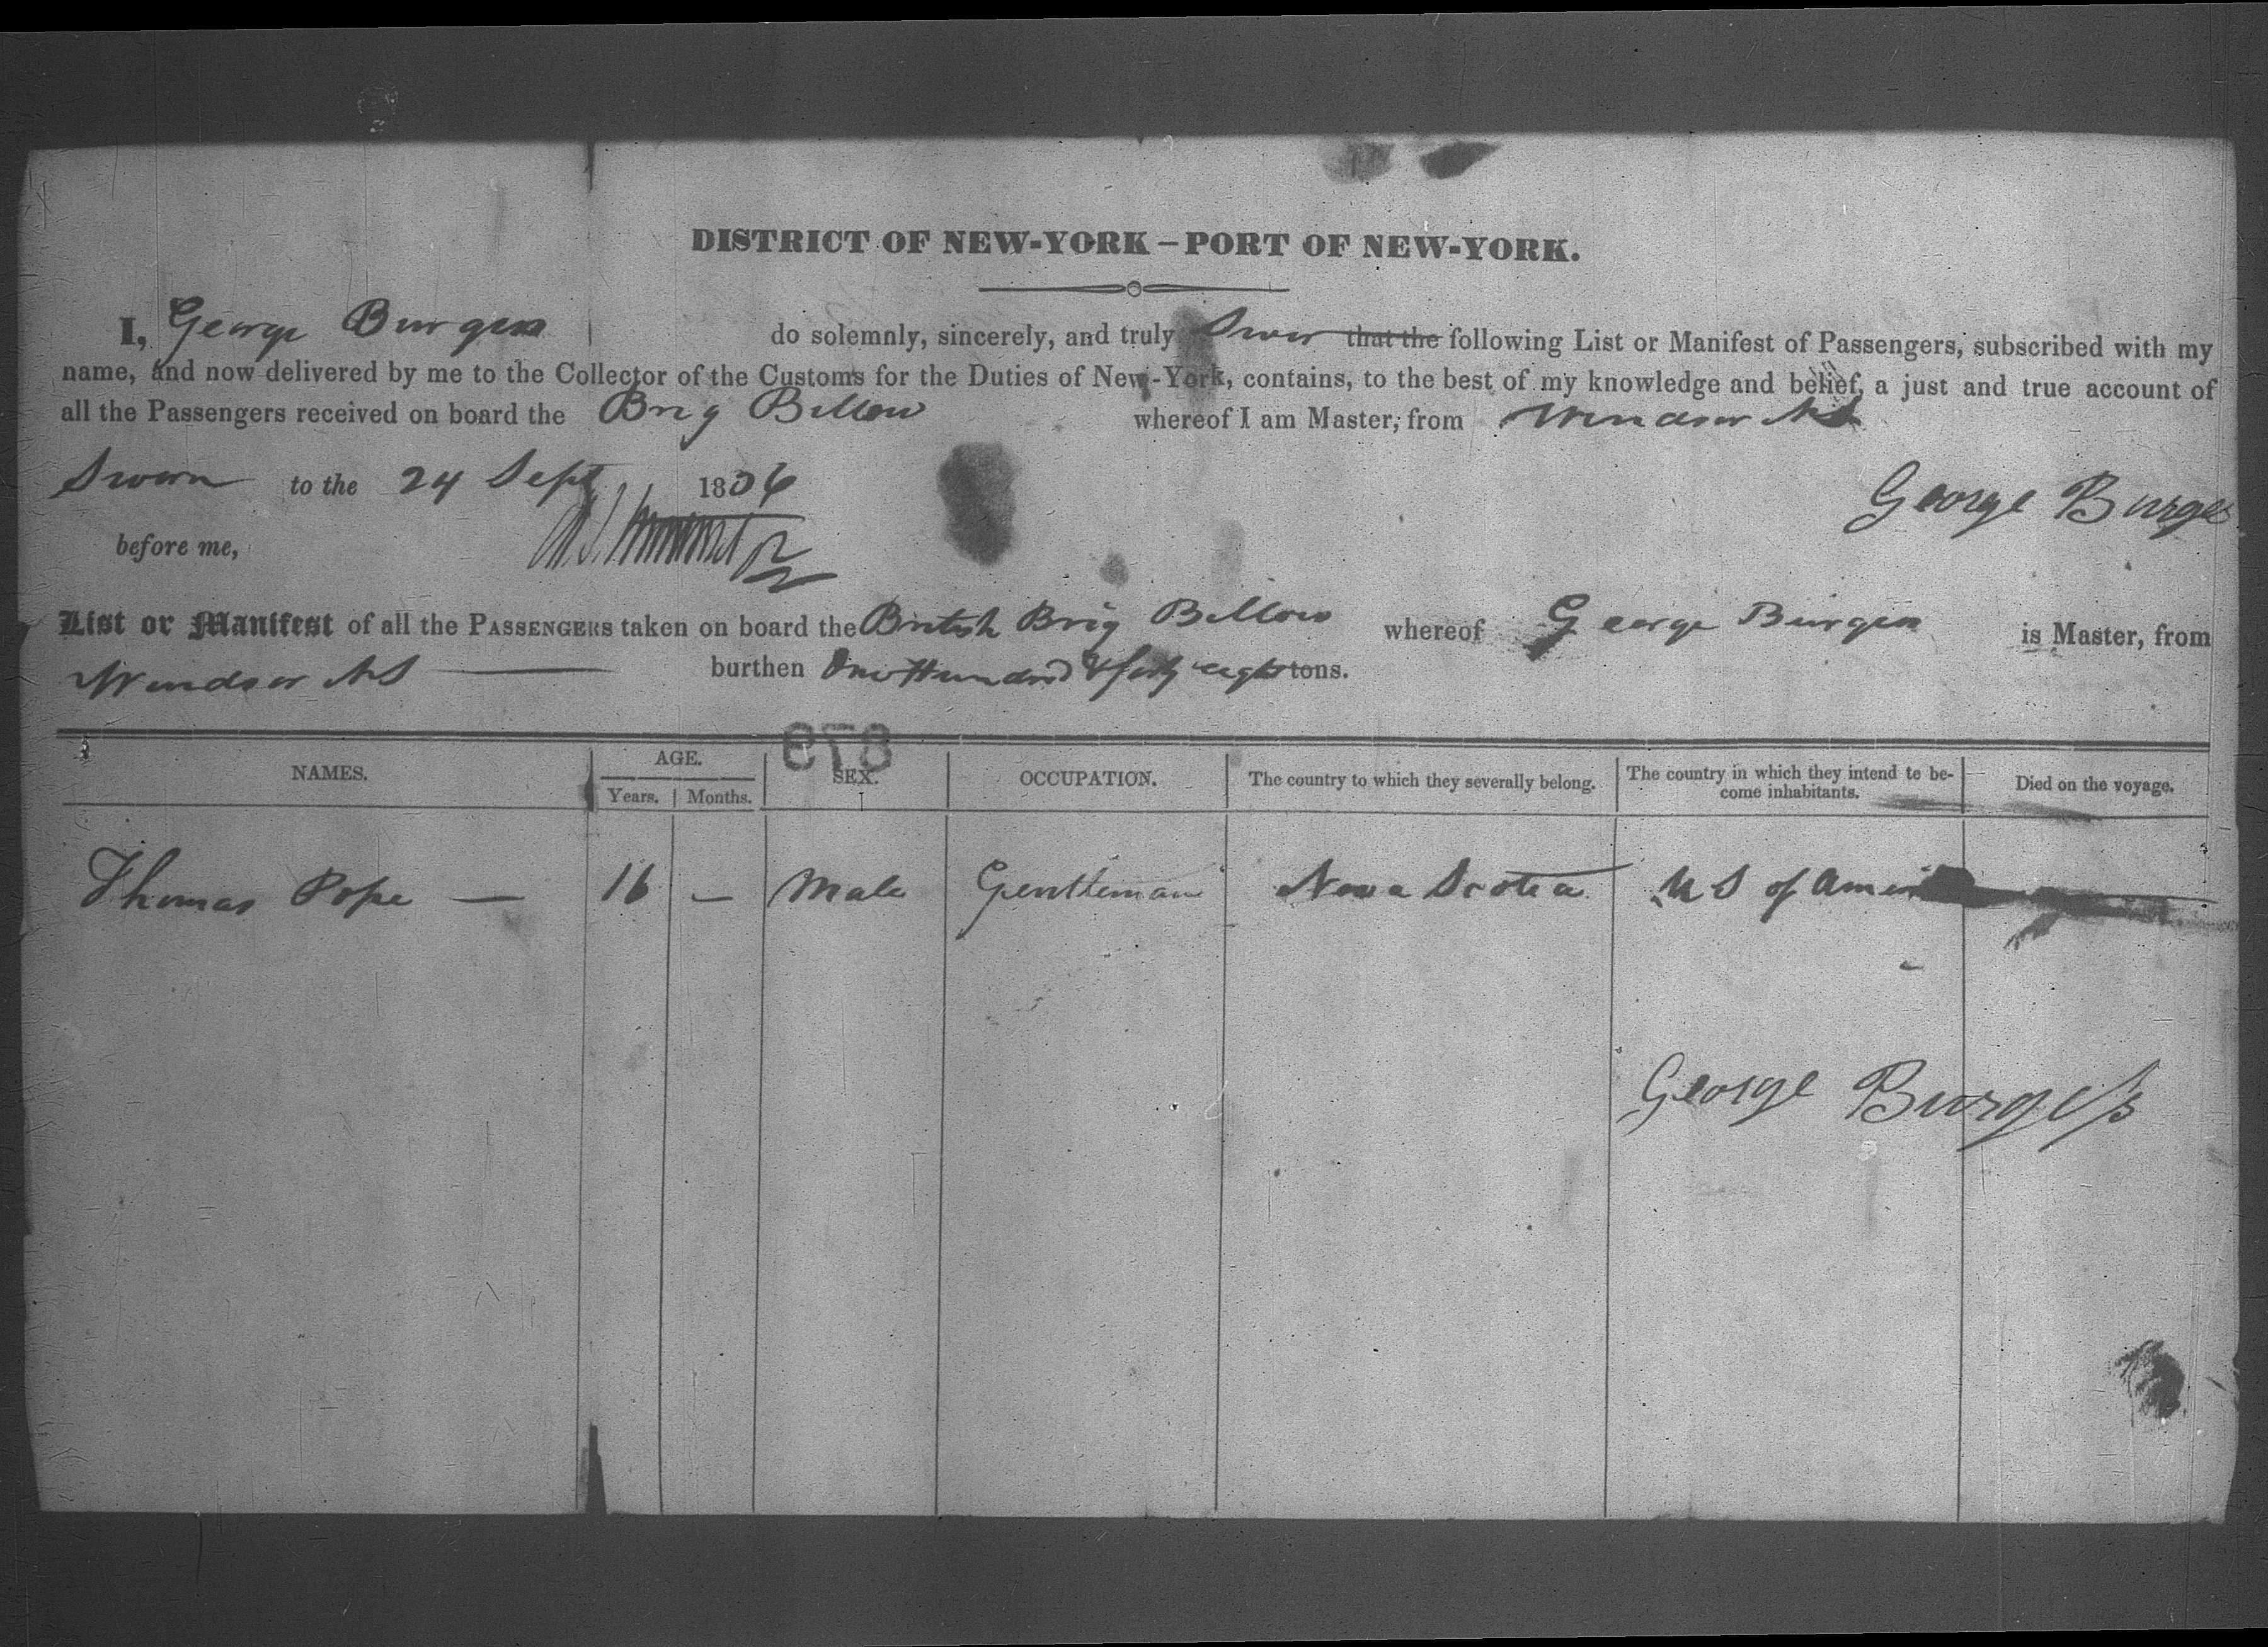 DISTRICT OF NEW-YORK – PORT OF NEW-YORK.
I, George Burgess do solemnly, sincerely, and truly Swear that the following List or Manifest of Passengers, subscribed with my
name, and now delivered by me to the Collector of the Customs for the Duties of New-York, contains, to the best of my knowledge and belief, a just and true account of
all the Passengers received on board the Brig Billow whereof I am Master, from Windsor NS
Sworn to the 24 Sept 1836
George Burgess
before me,
List or Manifest of all the PASSENGERS taken on board the British Brig Billow whereof George Burgess is Master, from
Windsor NS burthen One Hundred & forty eight tons.
NAMES. AGE. Years. Months. SEX. OCCUPATION. The country to which they severally belong. The country in which they intend to be-
come inhabitants. Died on the voyage.
Thomas Pope — 16 — Male Gentleman Nova Scotia U S of Ameri
George Burgess